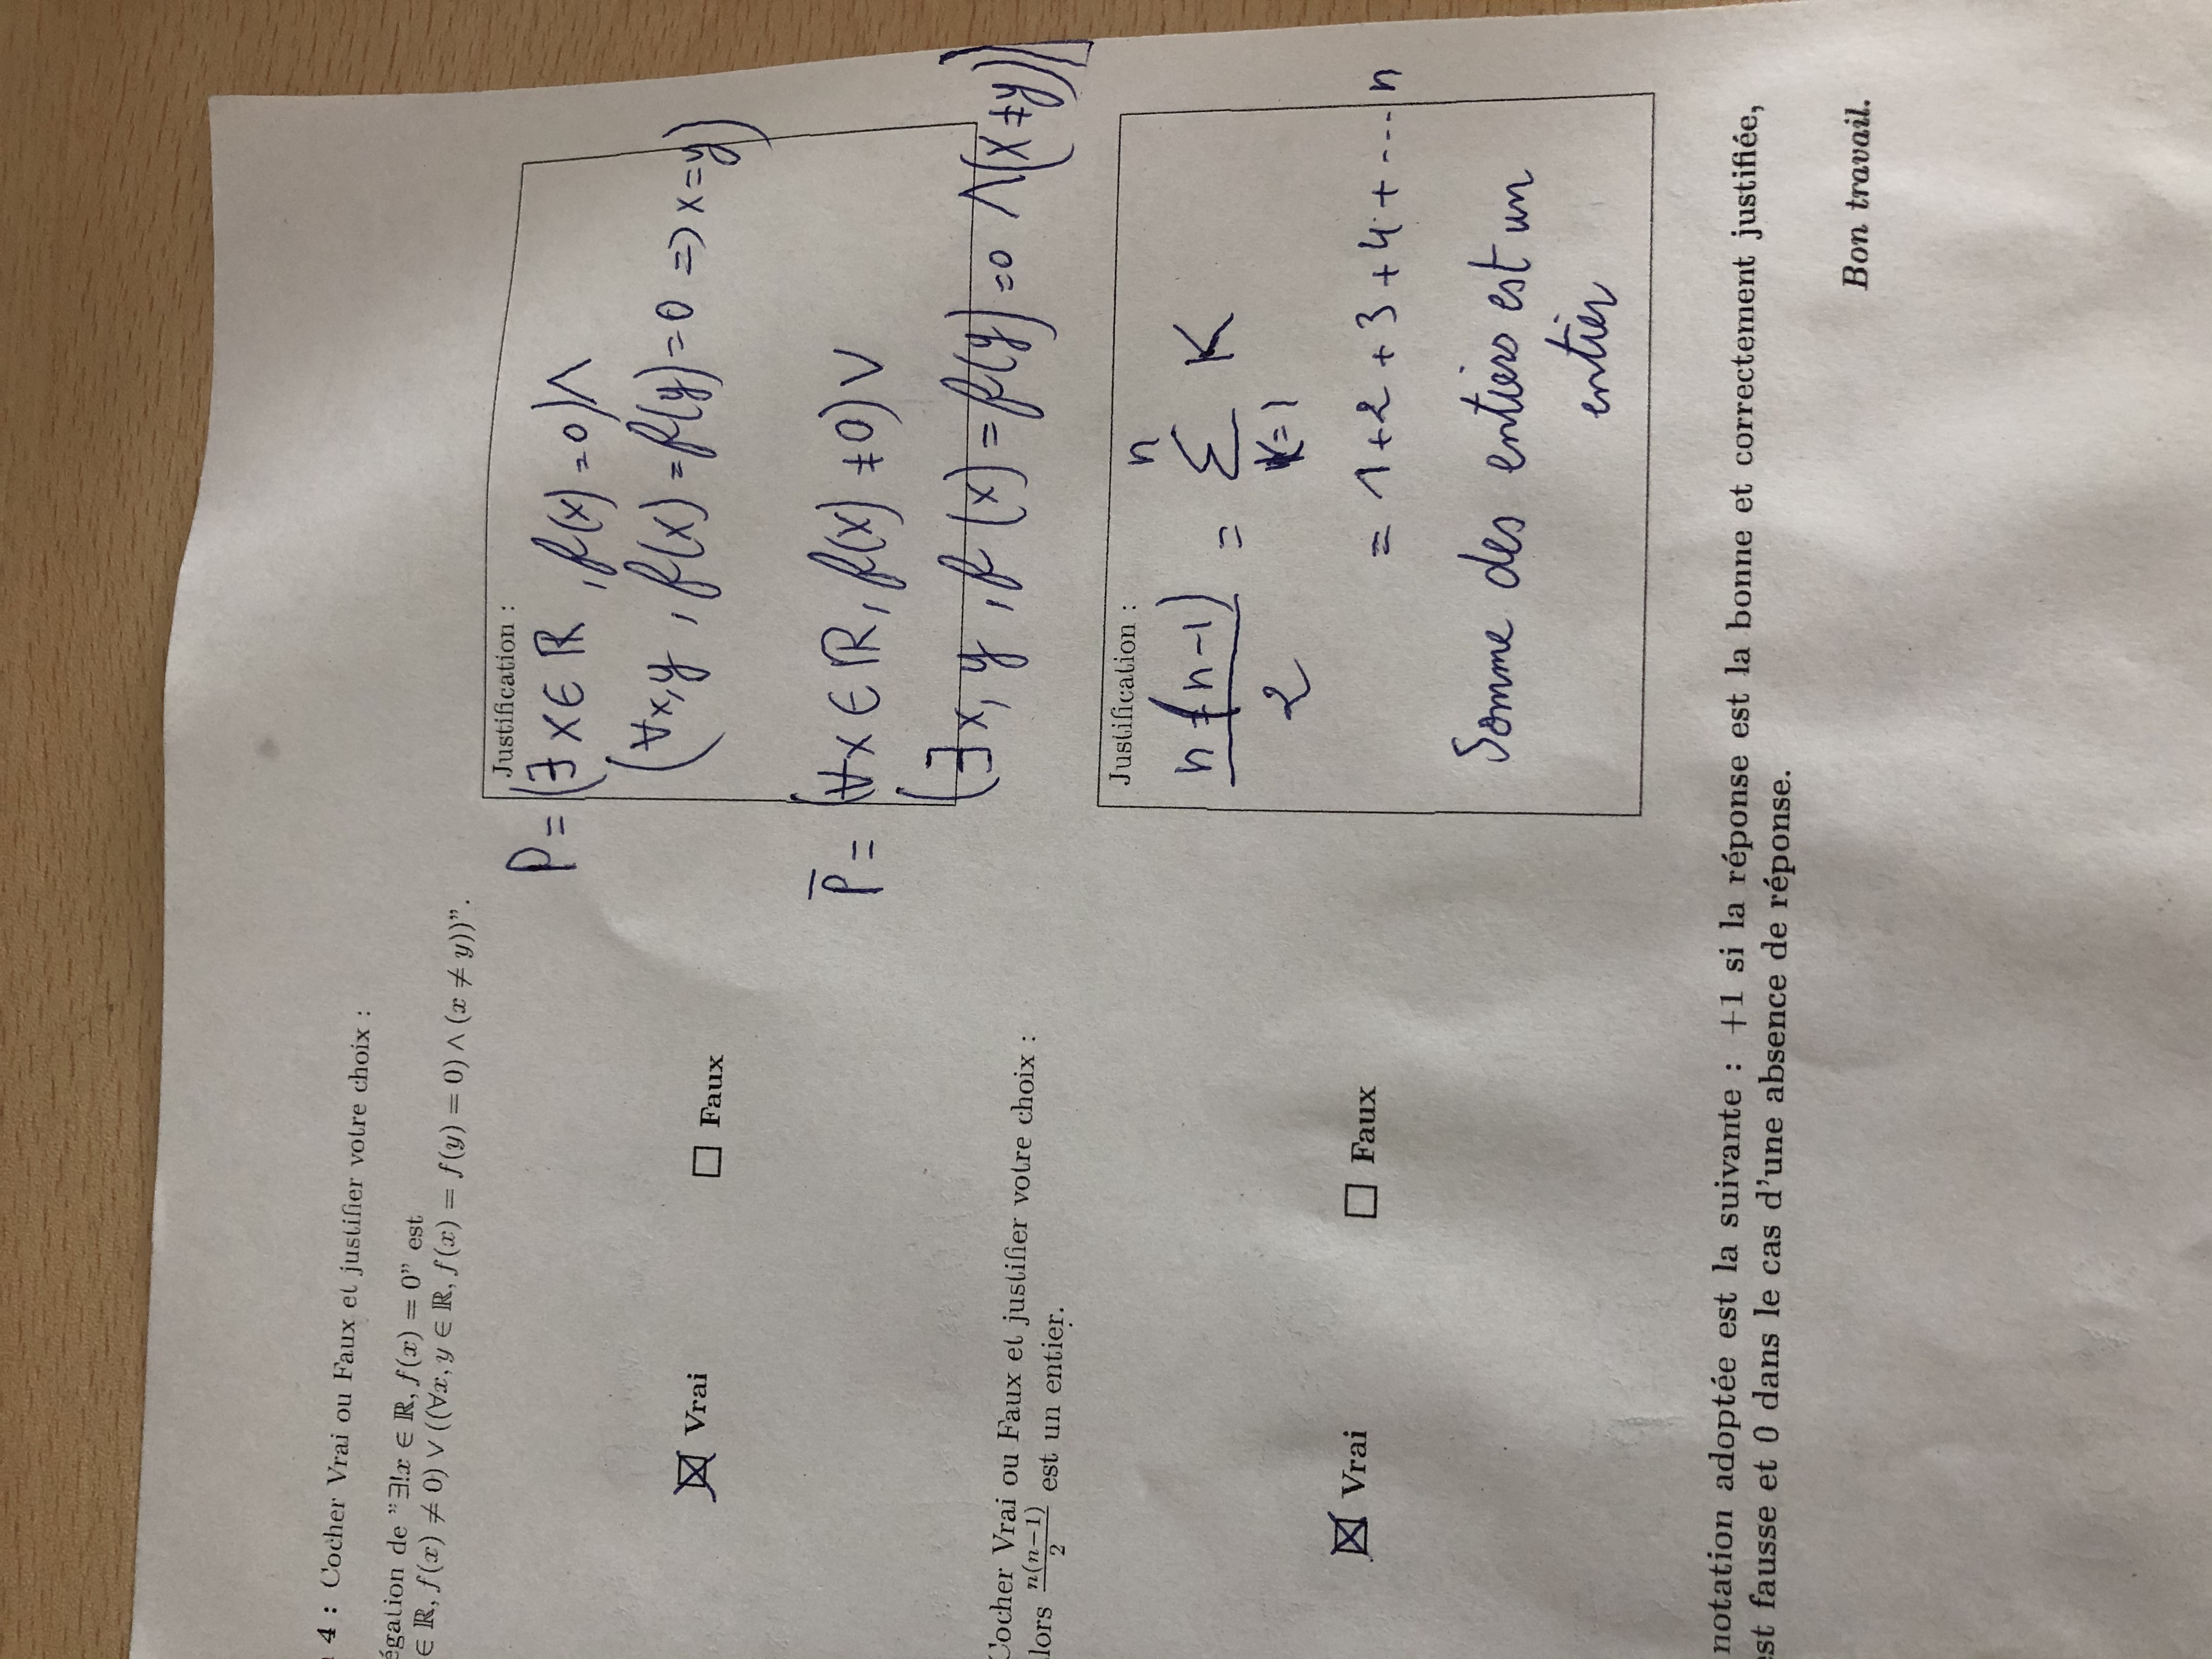 4 : Cocher Vrai ou Faux et justifier votre choix :
égation de "∃!x ∈ ℝ, f(x) = 0" est
∈ ℝ, f(x) ≠ 0) ∨ ((∀x, y ∈ ℝ, f(x) = f(y) = 0) ∧ (x ≠ y))".
Justification :
P = (∃ x ∈ ℝ , f(x) = 0) ∧
(∀x, y , f(x) = f(y) = 0 => x = y)
Vrai
Faux
P̅ = (∀x ∈ ℝ, f(x) ≠ 0) ∨
(∃x, y , f(x) = f(y) = 0 ∧ (x ≠ y))
Cocher Vrai ou Faux et justifier votre choix :
lors n(n−1)/2 est un entier.
Justification :
n(n-1)/2 = n Σ K=1 K
= 1+2+3+4+---n
Vrai
Faux
Somme des entiers est un
entier
notation adoptée est la suivante : +1 si la réponse est la bonne et correctement justifiée,
est fausse et 0 dans le cas d'une absence de réponse.
Bon travail.